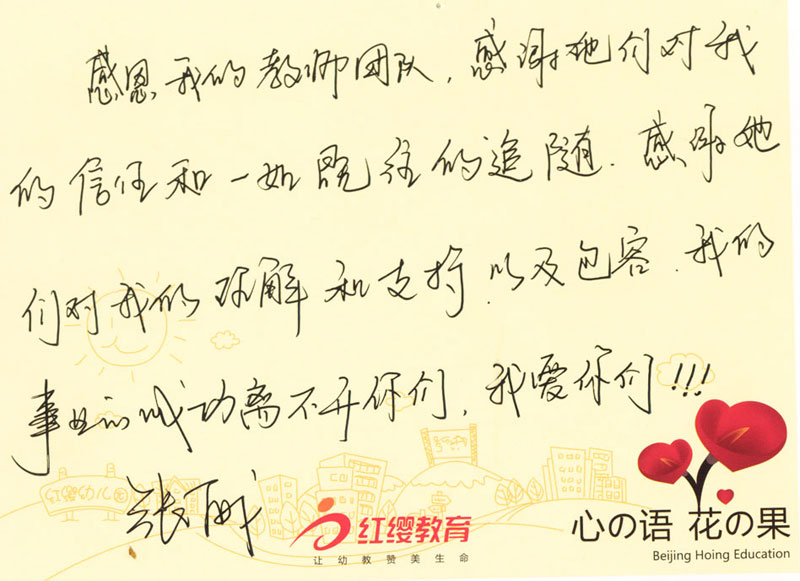 感恩我的教师团队，感谢她们对我
的信任和一如既往的追随．感谢她
们对我的理解和支持．以及包容．我的
事业的成功离不开你们，我爱你们!!!
张丽
红缨幼儿园
红缨教育
让幼教赞美生命
心の语 花の果
Beijing Hoing Education